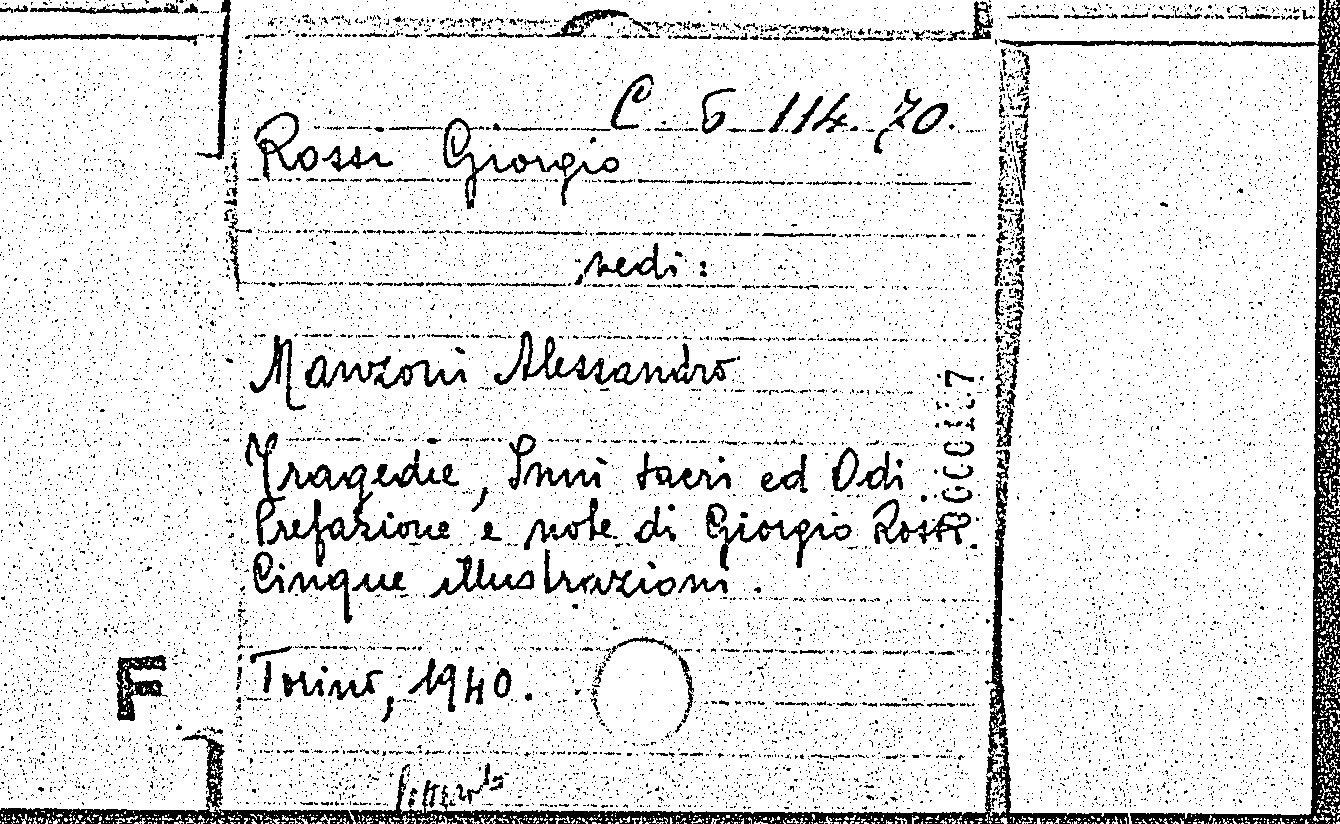 C. 5 114. 70.
Rossi Giorgio
vedi:
Manzoni Alessandro
Tragedie, Inni sacri ed Odi.
Prefazione e note di Giorgio Rossi.
Cinque illustrazioni.
Torino, 1940.
F